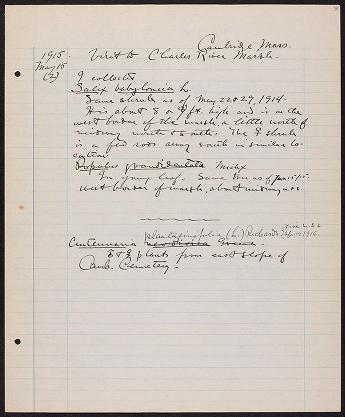 Cambridge, Mass.
1915 Visit to Charles River Marsh.
May 15
(2)
I collected
Salix babylonica L.
Same shrub as of May 22 & 29, 1914.
It is about 8 or 9 ft. high and is on the
west border of the marsh, a little north of
midway north & south. The ♀ shrub
is a few rods away south in similar lo-
cation.
Populus grandidentata Michx.
In young leaf. Same tree as of
west border of marsh, about midway n. & s.
plantaginifolia (L.) Richards.
Antennaria neodioica Greene.
♂ & ♀ plants from east slope of
Camb. Cemetery.